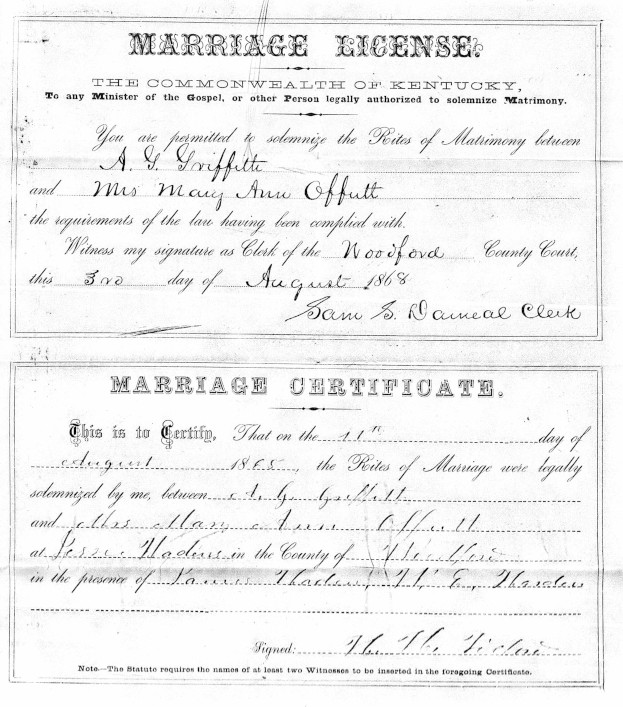 MARRIAGE LICENSE.
THE COMMONWEALTH OF KENTUCKY,
To any Minister of the Gospel, or other Person legally authorized to solemnize Matrimony.
You are permitted to solemnize the Rites of Matrimony between
A. G. Griffith
and Mrs Mary Ann Offutt
the requirements of the law having been complied with.
Witness my signature as Clerk of the Woodford County Court,
this 3rd day of August 1868
Sam G. Clerk
MARRIAGE CERTIFICATE.
This is to Certify, That on the 11th day of
August 1868, the Rites of Marriage were legally
solemnized by me, between A. G. Griffith
and Mrs Mary Ann Offutt
at in the County of Woodford
in the presence of
Signed:
Note.—The Statute requires the names of at least two Witnesses to be inserted in the foregoing Certificate.